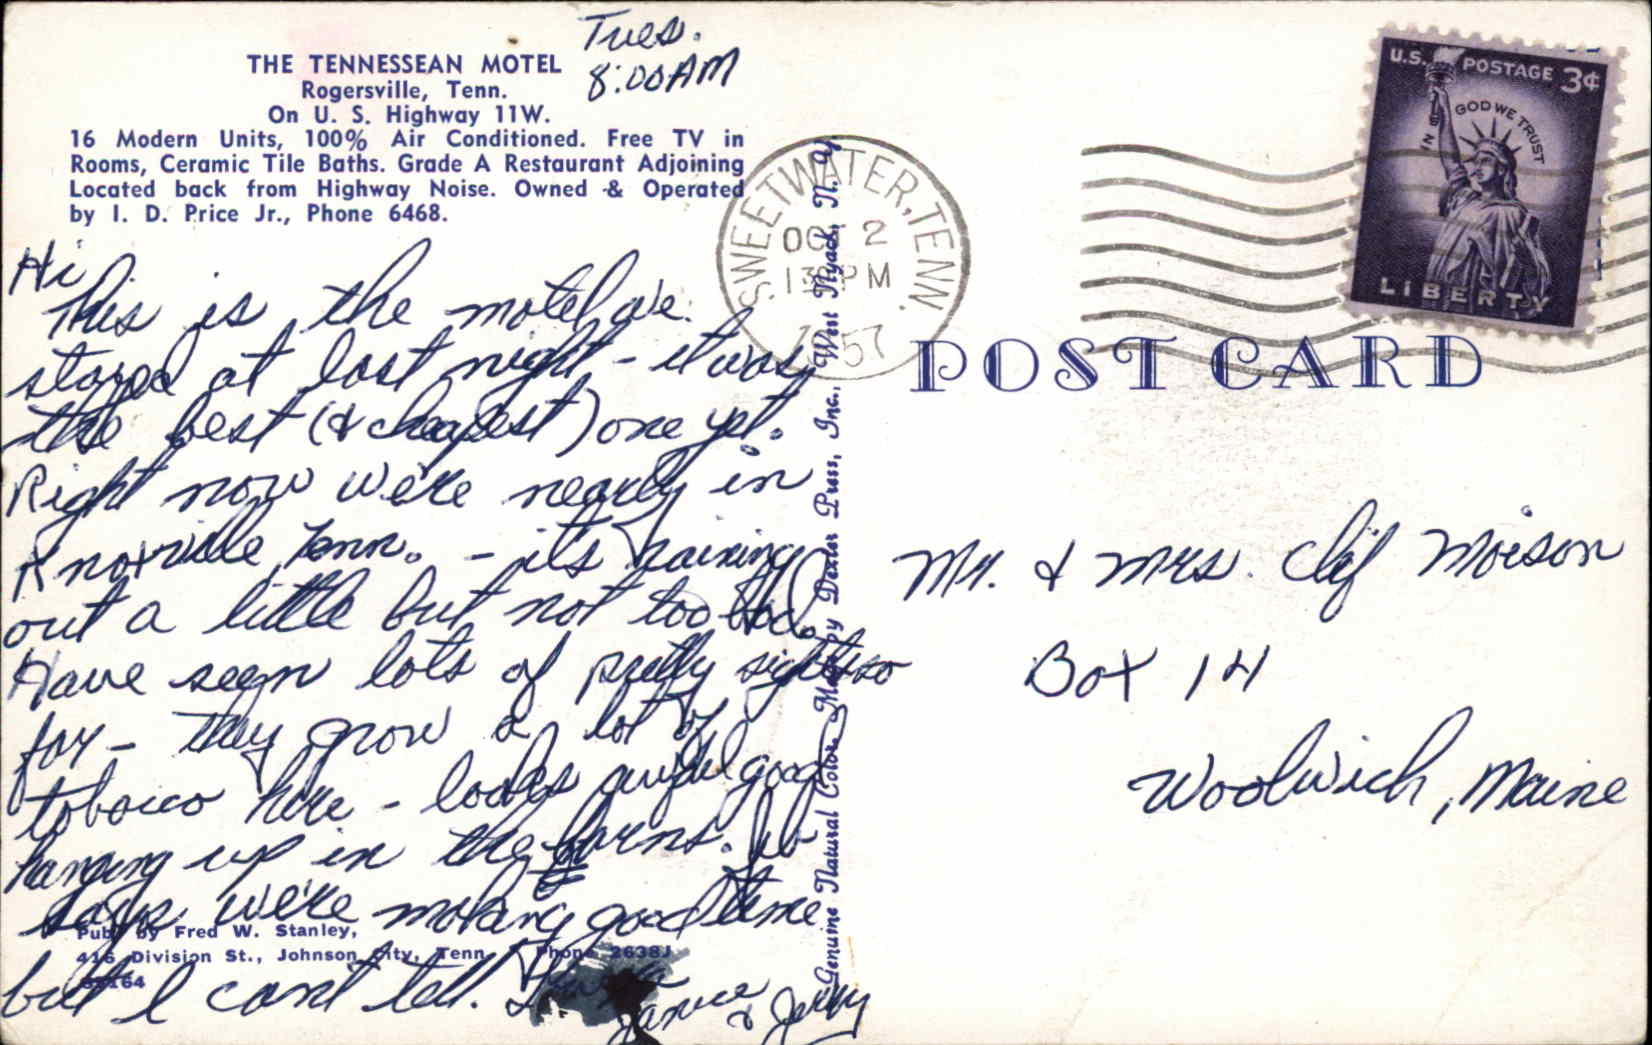 THE TENNESSEAN MOTEL
Rogersville, Tenn.
On U. S. Highway 11W.
16 Modern Units, 100% Air Conditioned. Free TV in
Rooms, Ceramic Tile Baths. Grade A Restaurant Adjoining
Located back from Highway Noise. Owned & Operated
by I. D. Price Jr., Phone 6468.
Tues.
8:00AM
Hi
This is the motel we
stayed at last night - it was
the best (& cheapest) one yet.
Right now we're nearly in
Knoxville, Tenn. - it's raining
out a little but not too bad.
Have seen lots of pretty sights so
far - they grow a lot of
tobacco here - looks awful good
hanging up in the barns.
says we're making good time
but I can't tell.
Janice
& Jerry
Pub. by Fred W. Stanley,
416 Division St., Johnson City, Tenn. Phone 2638J
Genuine Natural Color Made by Dexter Press, Inc., West Nyack, N. Y.
SWEETWATER, TENN.
OCT 2
PM
1957
U.S. POSTAGE 3¢
IN GOD WE TRUST
LIBERTY
POST CARD
Mr. & Mrs. Clif Moison
Box 14
Woolwich, Maine